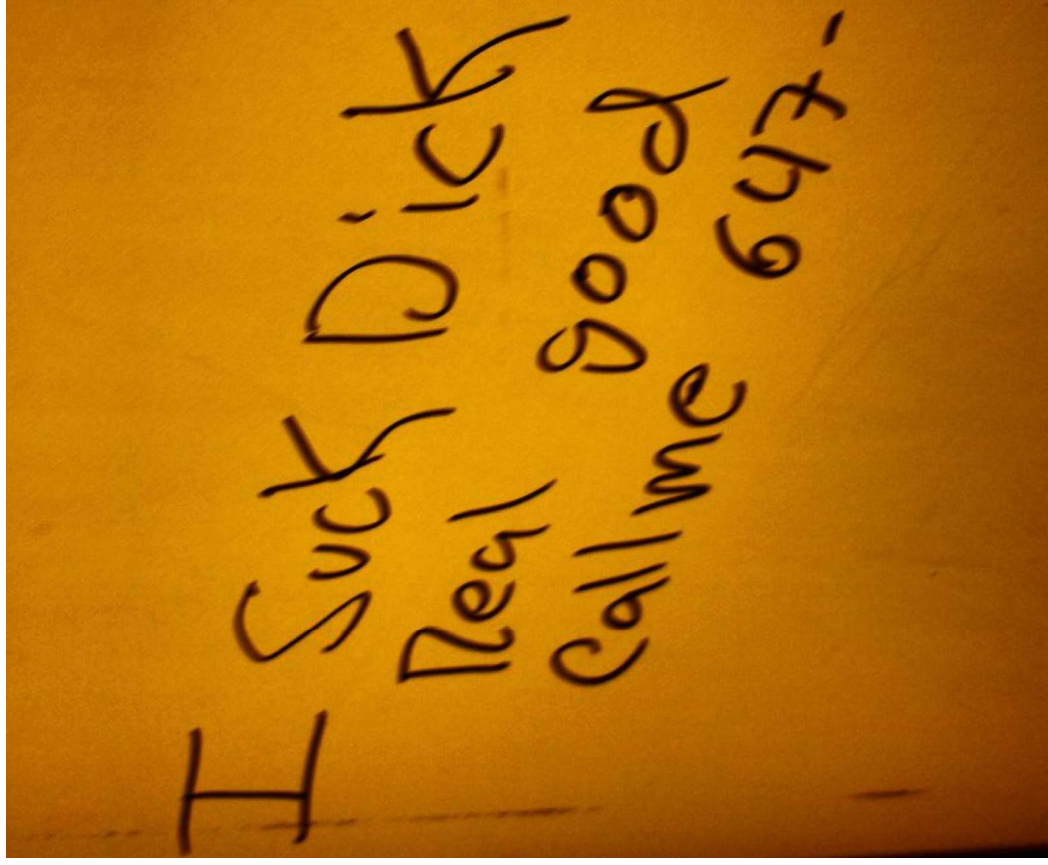 I Suck Dick
Real good
Call me 647-